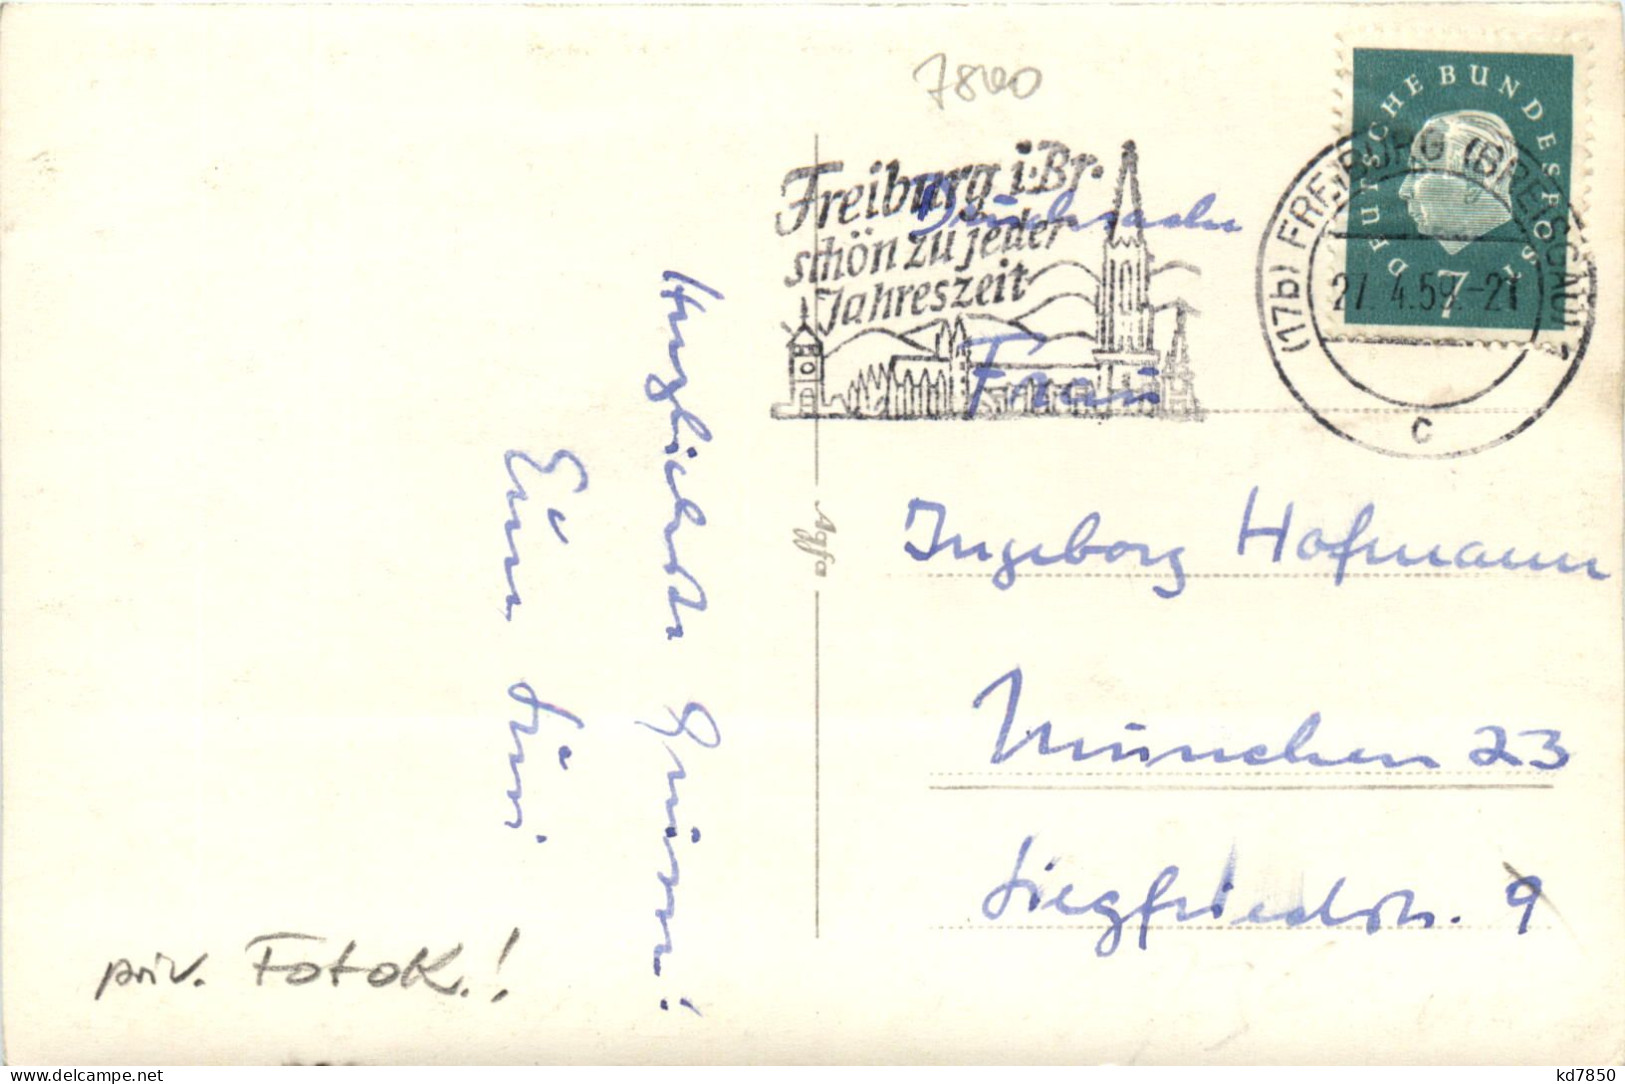 7840
Freiburg i. Br.
schön zu jeder
Jahreszeit
DEUTSCHE BUNDESPOST
7
(17b) FREIBURG (BREISGAU) 2
27.4.59.-21
c
Drucksache
Frau
Ingeborg Hofmann
München 23
Siegfriedstr. 9
Agfa
Herzlichste Grüsse!
Eure
priv. Fotok.!
kd7850